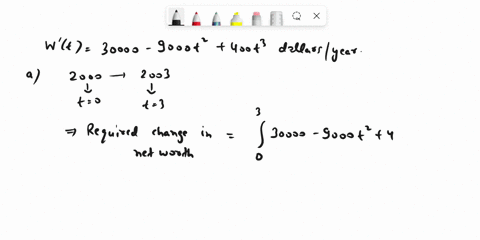 W'(t) = 30000 - 9000t² + 400t³ dollars/year.
a) 2000 → 2003
↓ ↓
t=0 t=3
⇒ Required change in net worth = ∫₀³ 30000 - 9000t² + 4